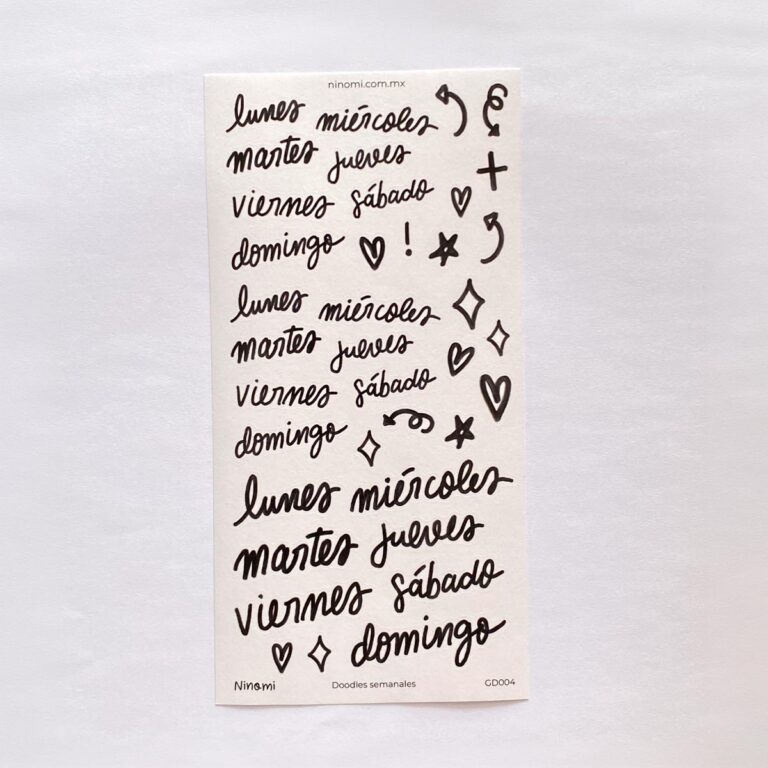 ninomi.com.mx
lunes miércoles
martes jueves
viernes sábado
domingo !
lunes miércoles
martes jueves
viernes sábado
domingo
lunes miércoles
martes jueves
viernes sábado
domingo
Ninomi Doodles semanales GD004